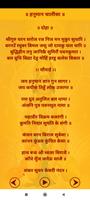 ॥ हनुमान चालीसा ॥
॥ दोहा ॥
श्रीगुरु चरन सरोज रज निज मनु मुकुरु सुधारि ।
बरनऊं रघुबर बिमल जसु जो दायकु फल चारि ॥
बुद्धिहीन तनु जानिके सुमिरौं पवन-कुमार ।
बल बुद्धि बिद्या देहु मोहिं हरहु कलेस बिकार ॥
॥ चौपाई ॥
जय हनुमान ज्ञान गुन सागर ।
जय कपीस तिहुं लोक उजागर ॥
रामदूत अतुलित बल धामा ।
अंजनि पुत्र पवनसुत नामा ॥
महाबीर बिक्रम बजरंगी ।
कुमति निवार सुमति के संगी ॥
कंचन बरन बिराज सुबेसा ।
कानन कुंडल कुंचित केसा ॥
हाथ बज्र औ ध्वजा बिराजै ।
कांधे मूंज जनेऊ साजै ॥